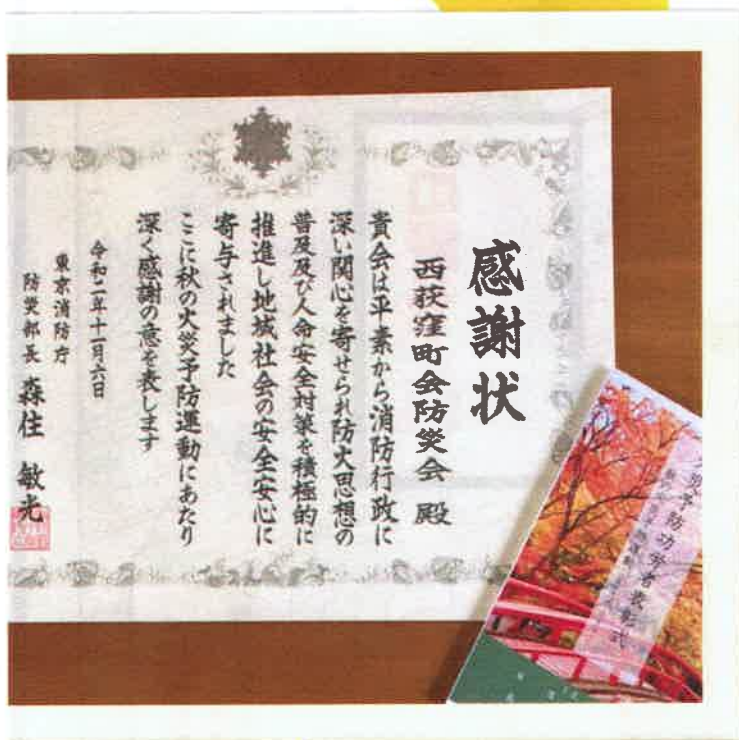 感謝状
西荻窪町会防災会 殿
貴会は平素から消防行政に
深い関心を寄せられ防火思想の
普及及び人命安全対策を積極的に
推進し地域社会の安全安心に
寄与されました
ここに秋の火災予防運動にあたり
深く感謝の意を表します
令和二年十一月六日
東京消防庁
防災部長 森住 敏光
予防功労者表彰式